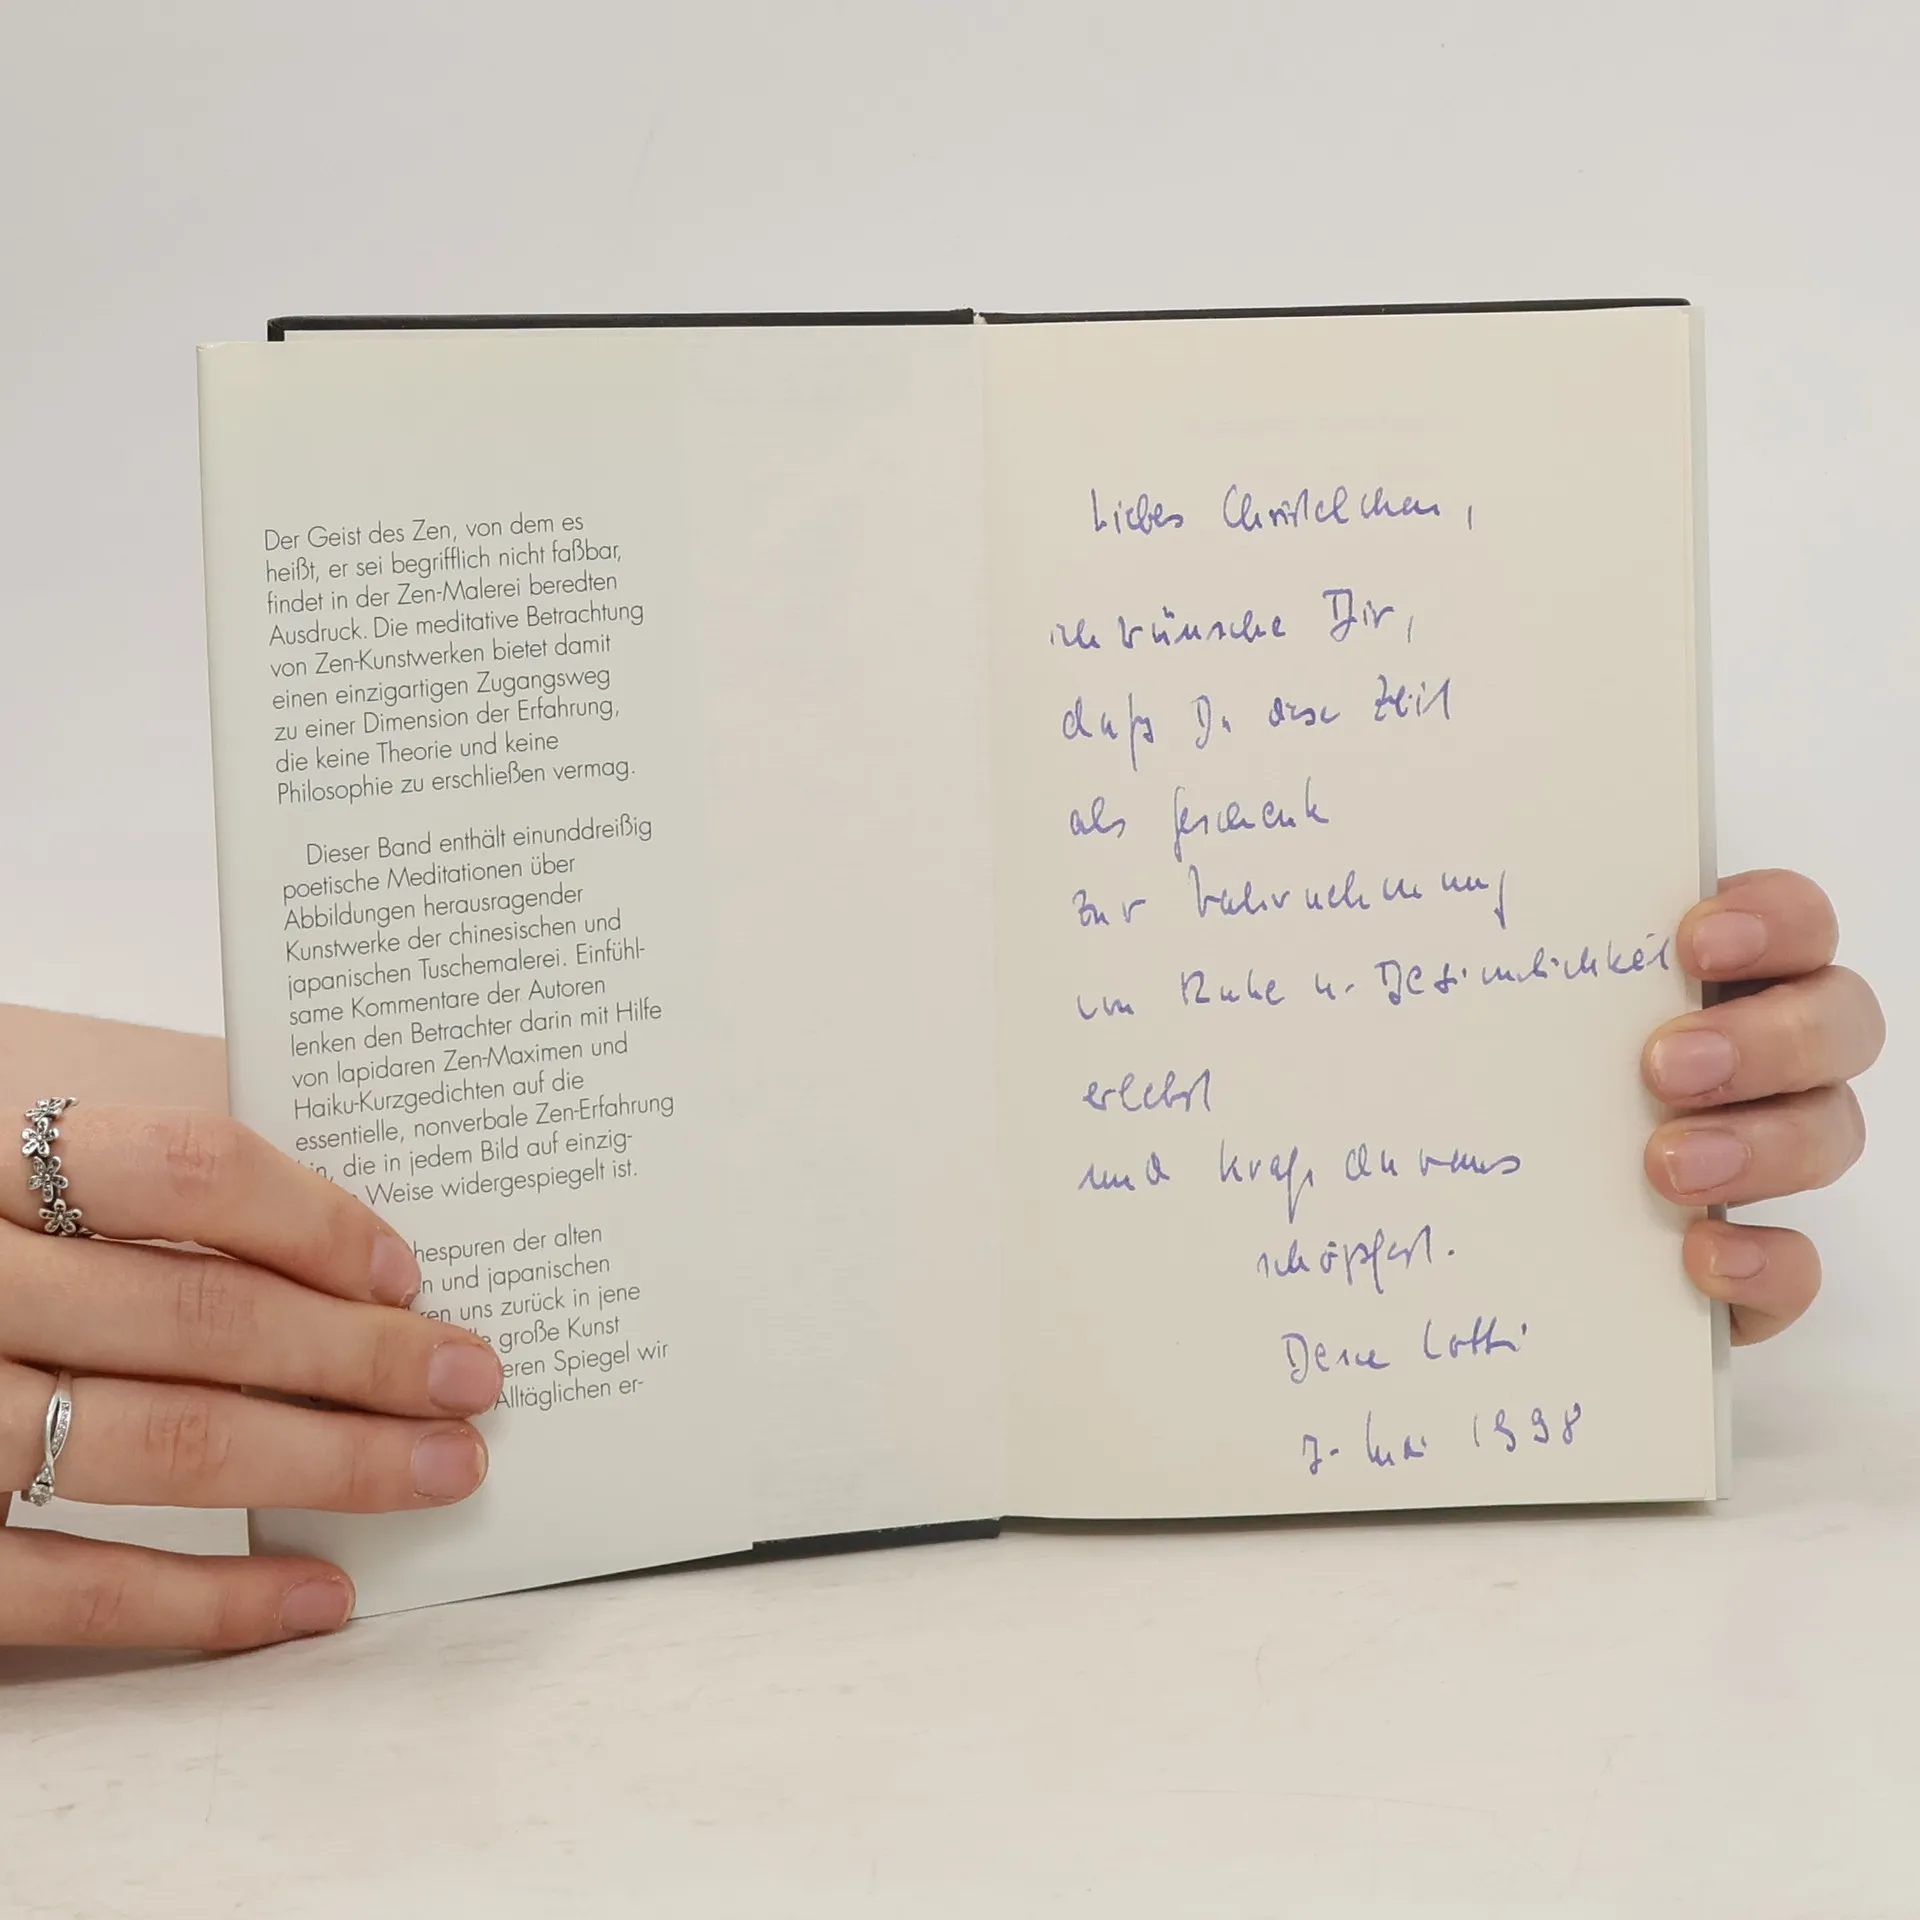 Der Geist des Zen, von dem es
heißt, er sei begrifflich nicht faßbar,
findet in der Zen-Malerei beredten
Ausdruck. Die meditative Betrachtung
von Zen-Kunstwerken bietet damit
einen einzigartigen Zugangsweg
zu einer Dimension der Erfahrung,
die keine Theorie und keine
Philosophie zu erschließen vermag.
Dieser Band enthält einunddreißig
poetische Meditationen über
Abbildungen herausragender
Kunstwerke der chinesischen und
japanischen Tuschemalerei. Einfühl-
same Kommentare der Autoren
lenken den Betrachter darin mit Hilfe
von lapidaren Zen-Maximen und
Haiku-Kurzgedichten auf die
essentielle, nonverbale Zen-Erfahrung
die in jedem Bild auf einzig-
Weise widergespiegelt ist.
der alten
und japanischen
uns zurück in jene
große Kunst
Spiegel wir
Alltäglichen er-
Liebes Christelchen,
ich wünsche Dir,
daß Du diese Zeit
als Geschenk
zur Wahrnehmung
von Ruhe u. Besinnlichkeit
erlebst
und Kraft daraus
schöpfest.
Deine Lotti
7. Mai 1998